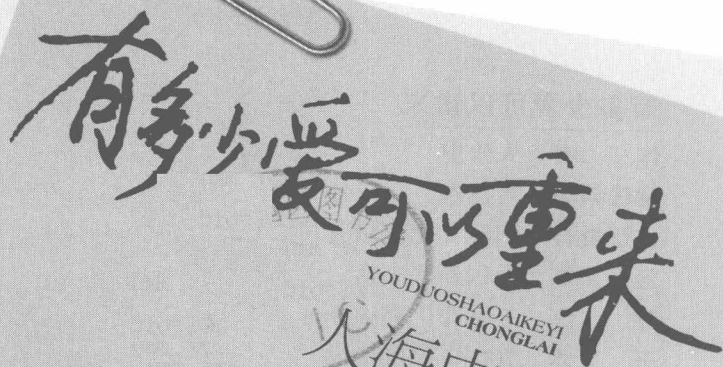 有多少爱可以重来
YOUDUOSHAOAIKEYI
CHONGLAI
人海